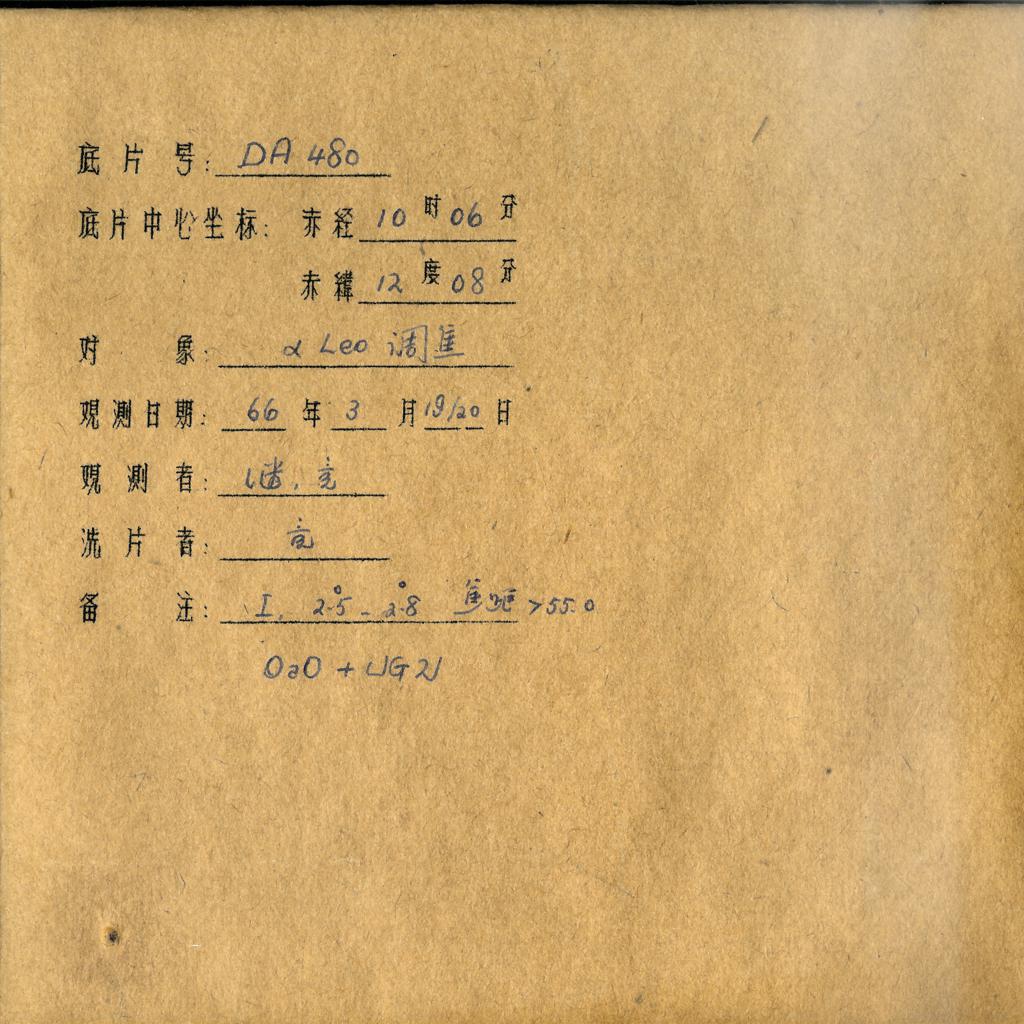 底片号: DA 480
底片中心坐标: 赤经 10 时 06 分
赤纬 12 度 08 分
对象: α Leo 调焦
观测日期: 66 年 3 月 19/20 日
观测者:
洗片者:
备注: I. 2°.5 - 2°.8 焦距 >55.0
OaO + UG2